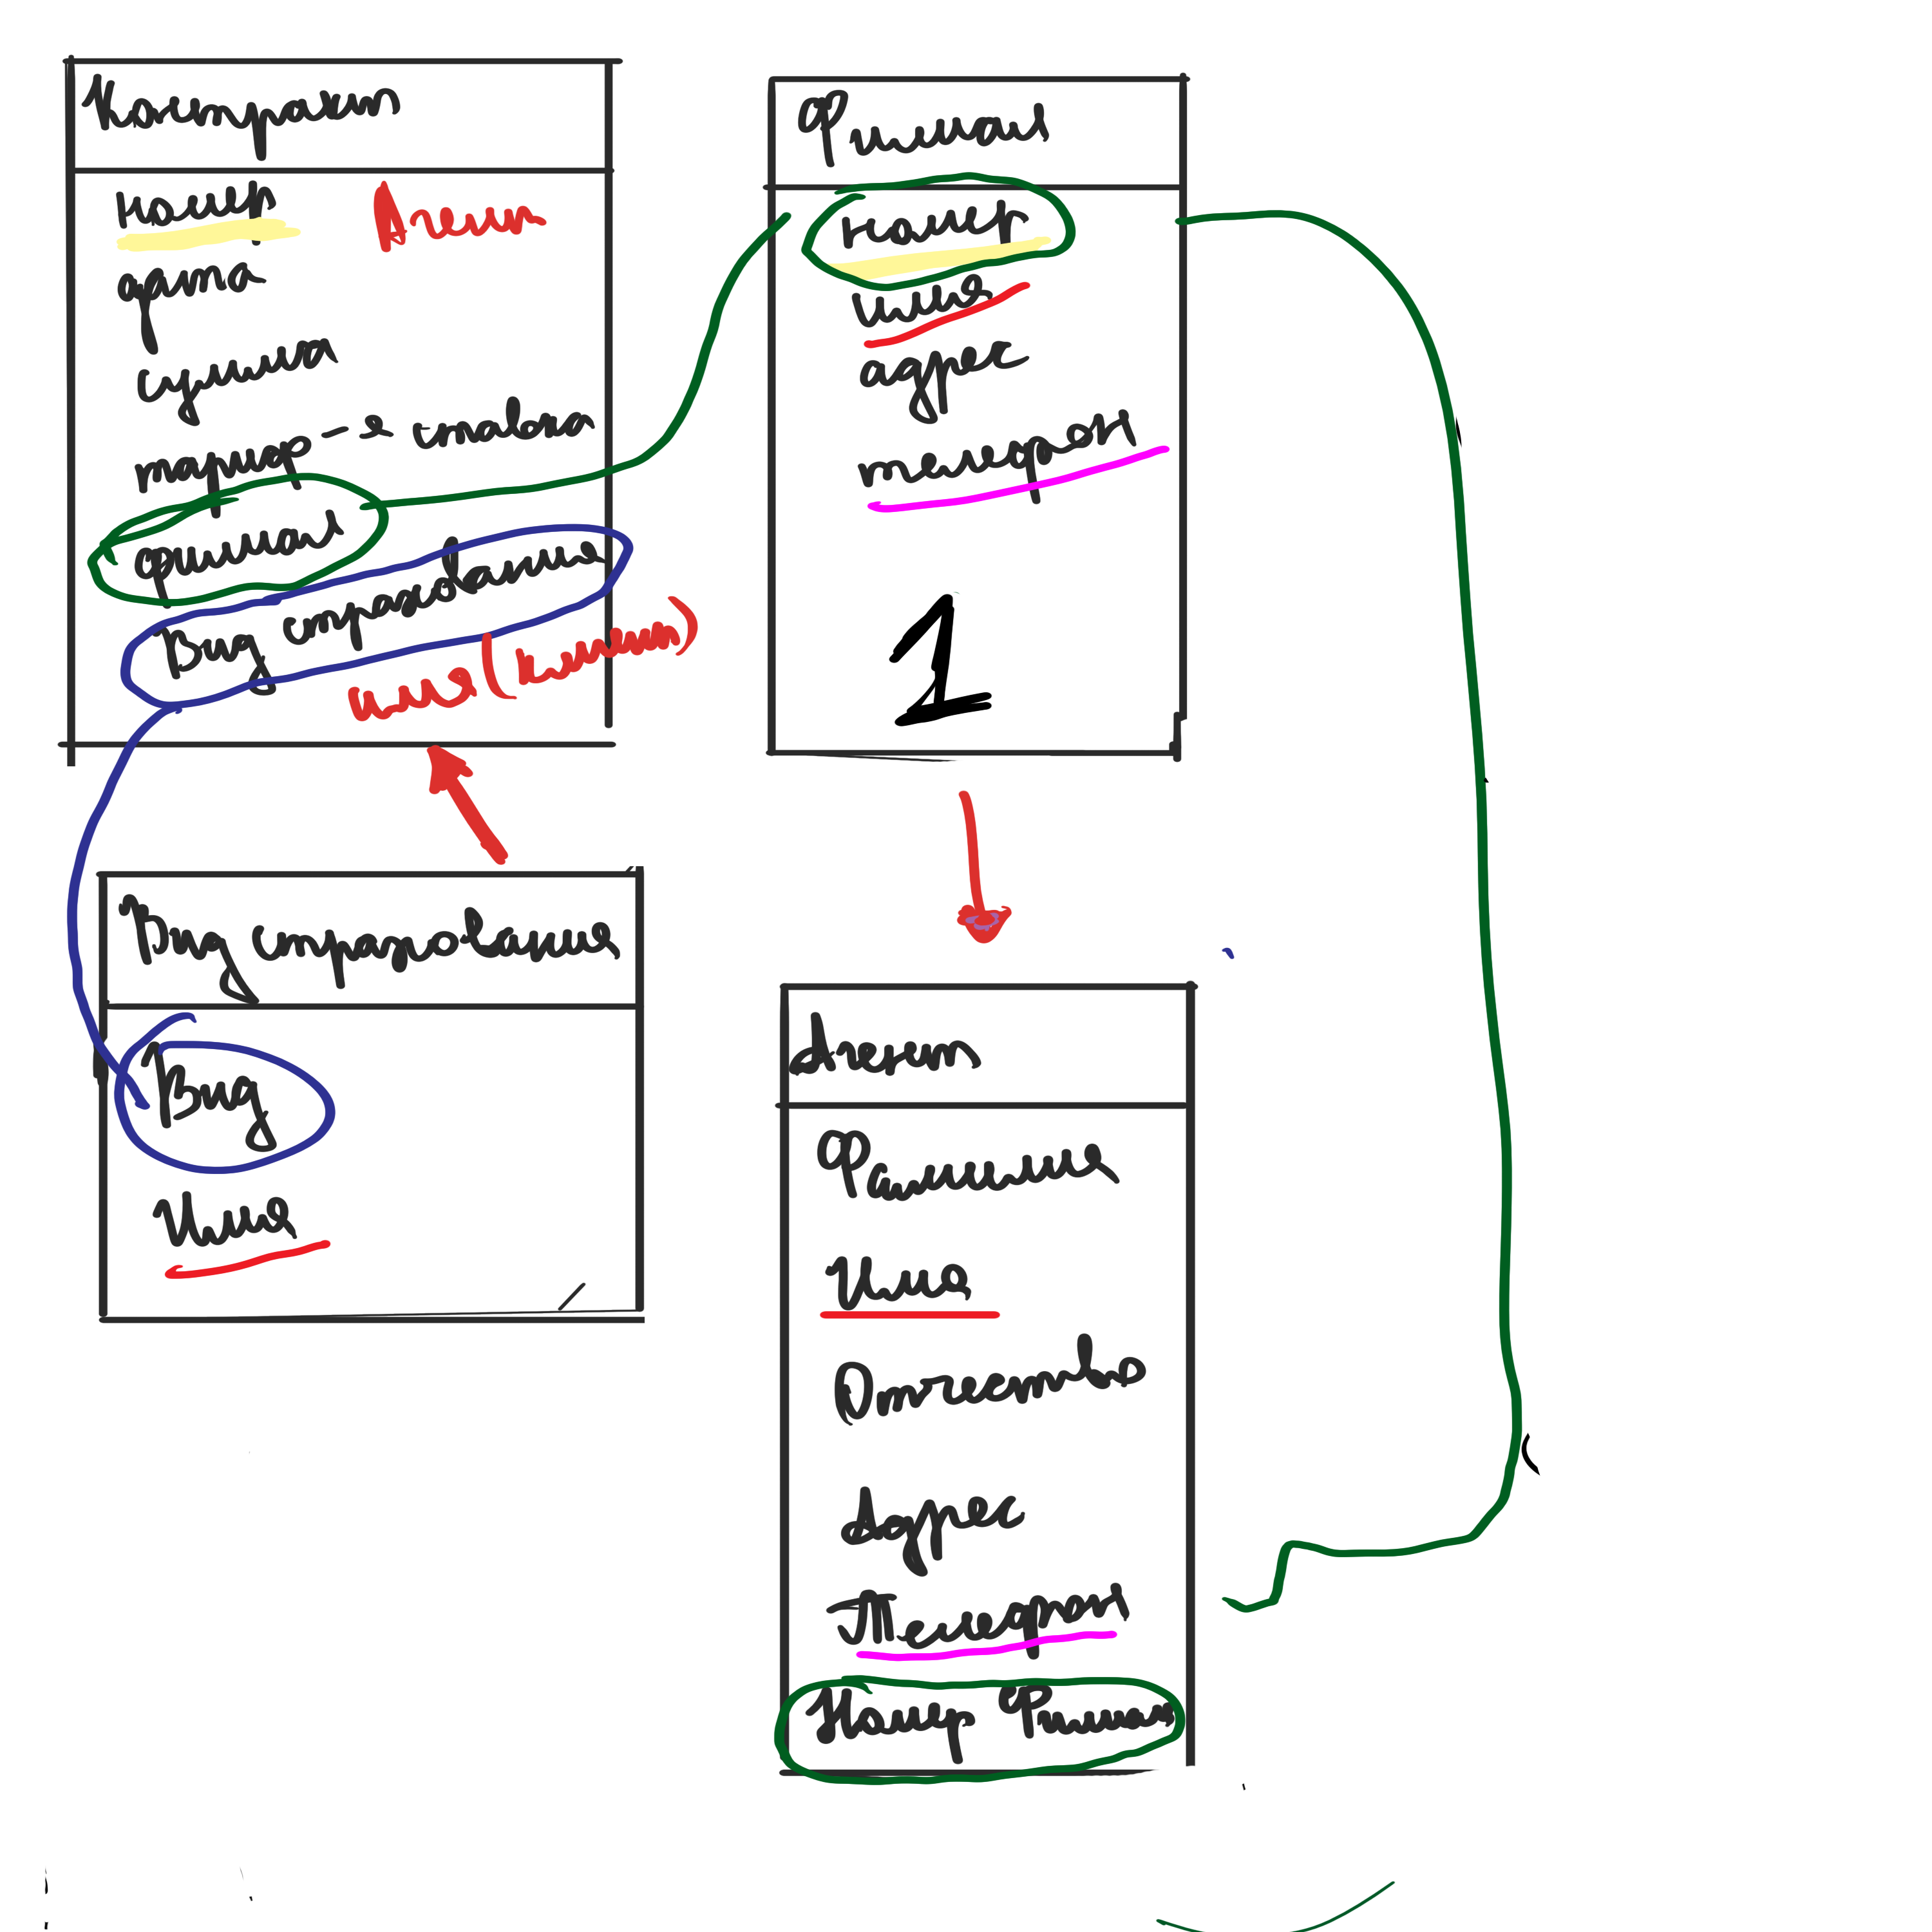 Контракт
номер
Агент
дата
сумма
тариф → ставка
филиал
Вид страхования
имя (клиент)
Филиал
номер
имя
адрес
телефон
1
Вид страхования
Вид
Имя
Агент
Фамилия
Имя
Отчество
Адрес
Телефон
Номер Филиал